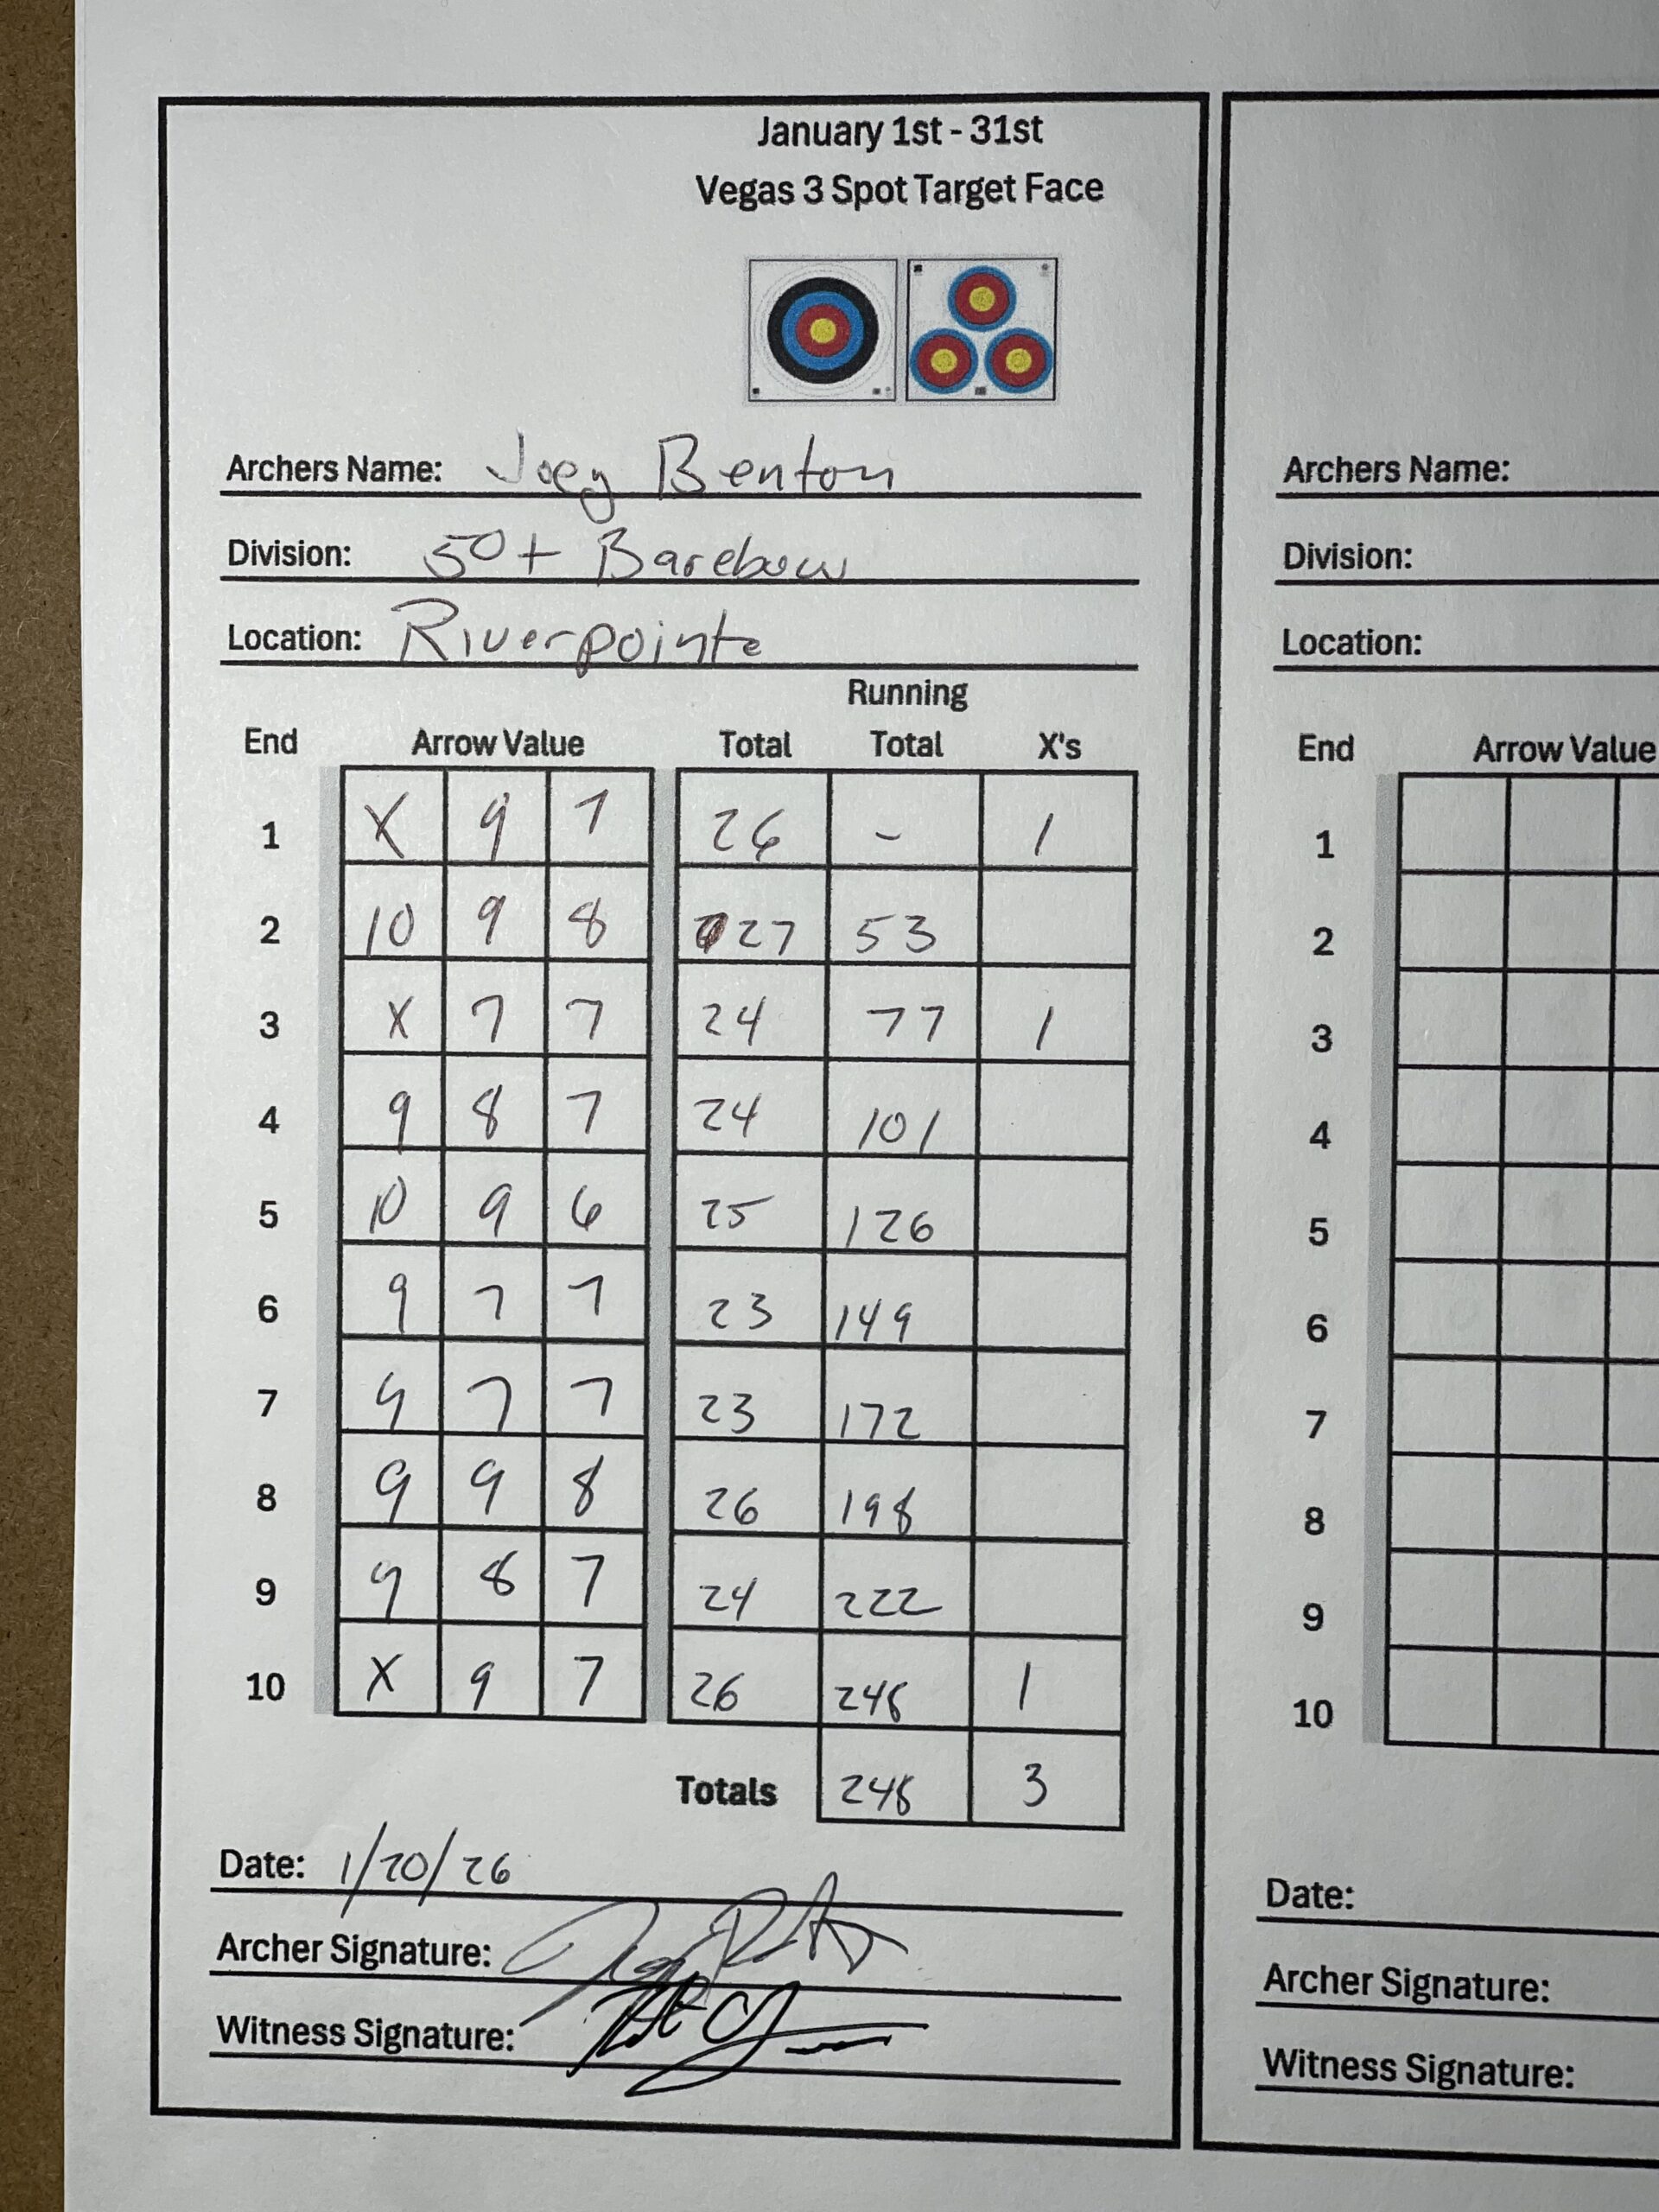 January 1st - 31st
Vegas 3 Spot Target Face
Archers Name: Joey Benton
Division: 50+ Barebow
Location: Riverpointe
Running
End Arrow Value Total Total X's
1 X 9 7 26 - 1
2 10 9 8 27 53
3 X 7 7 24 77 1
4 9 8 7 24 101
5 10 9 6 25 126
6 9 7 7 23 149
7 9 7 7 23 172
8 9 9 8 26 198
9 9 8 7 24 222
10 X 9 7 26 248 1
Totals 248 3
Date: 1/20/26
Archer Signature:
Witness Signature:
Archers Name:
Division:
Location:
End Arrow Value
1
2
3
4
5
6
7
8
9
10
Date:
Archer Signature:
Witness Signature: